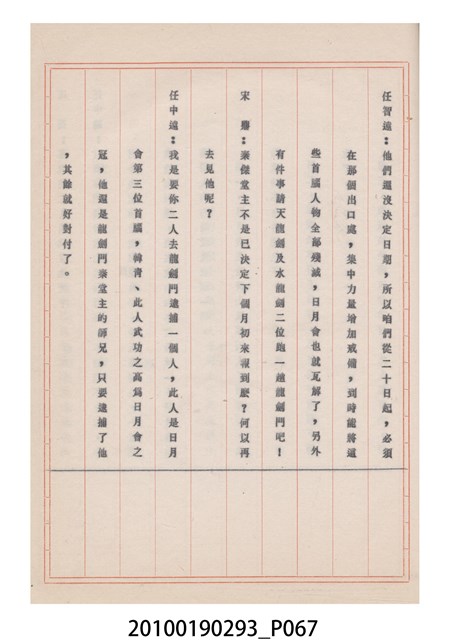 任智遠：他們還沒決定日期，所以咱們從二十日起，必須
在那個出口處，集中力量增加戒備，到時能將這
些首腦人物全部殲滅，日月會也就瓦解了，另外
有件事請天龍劍及水龍劍二位跑一趟龍劍門吧！
宋　騰：秦傑堂主不是已決定下個月初來報到麼？何以再
去見他呢？
任中遠：我是要你二人去龍劍門逮捕一個人，此人是日月
會第三位首腦，韓青、此人武功之高為日月會之
冠，他還是龍劍門秦堂主的師兄，只要逮捕了他
，其餘就好對付了。
20100190293_P067